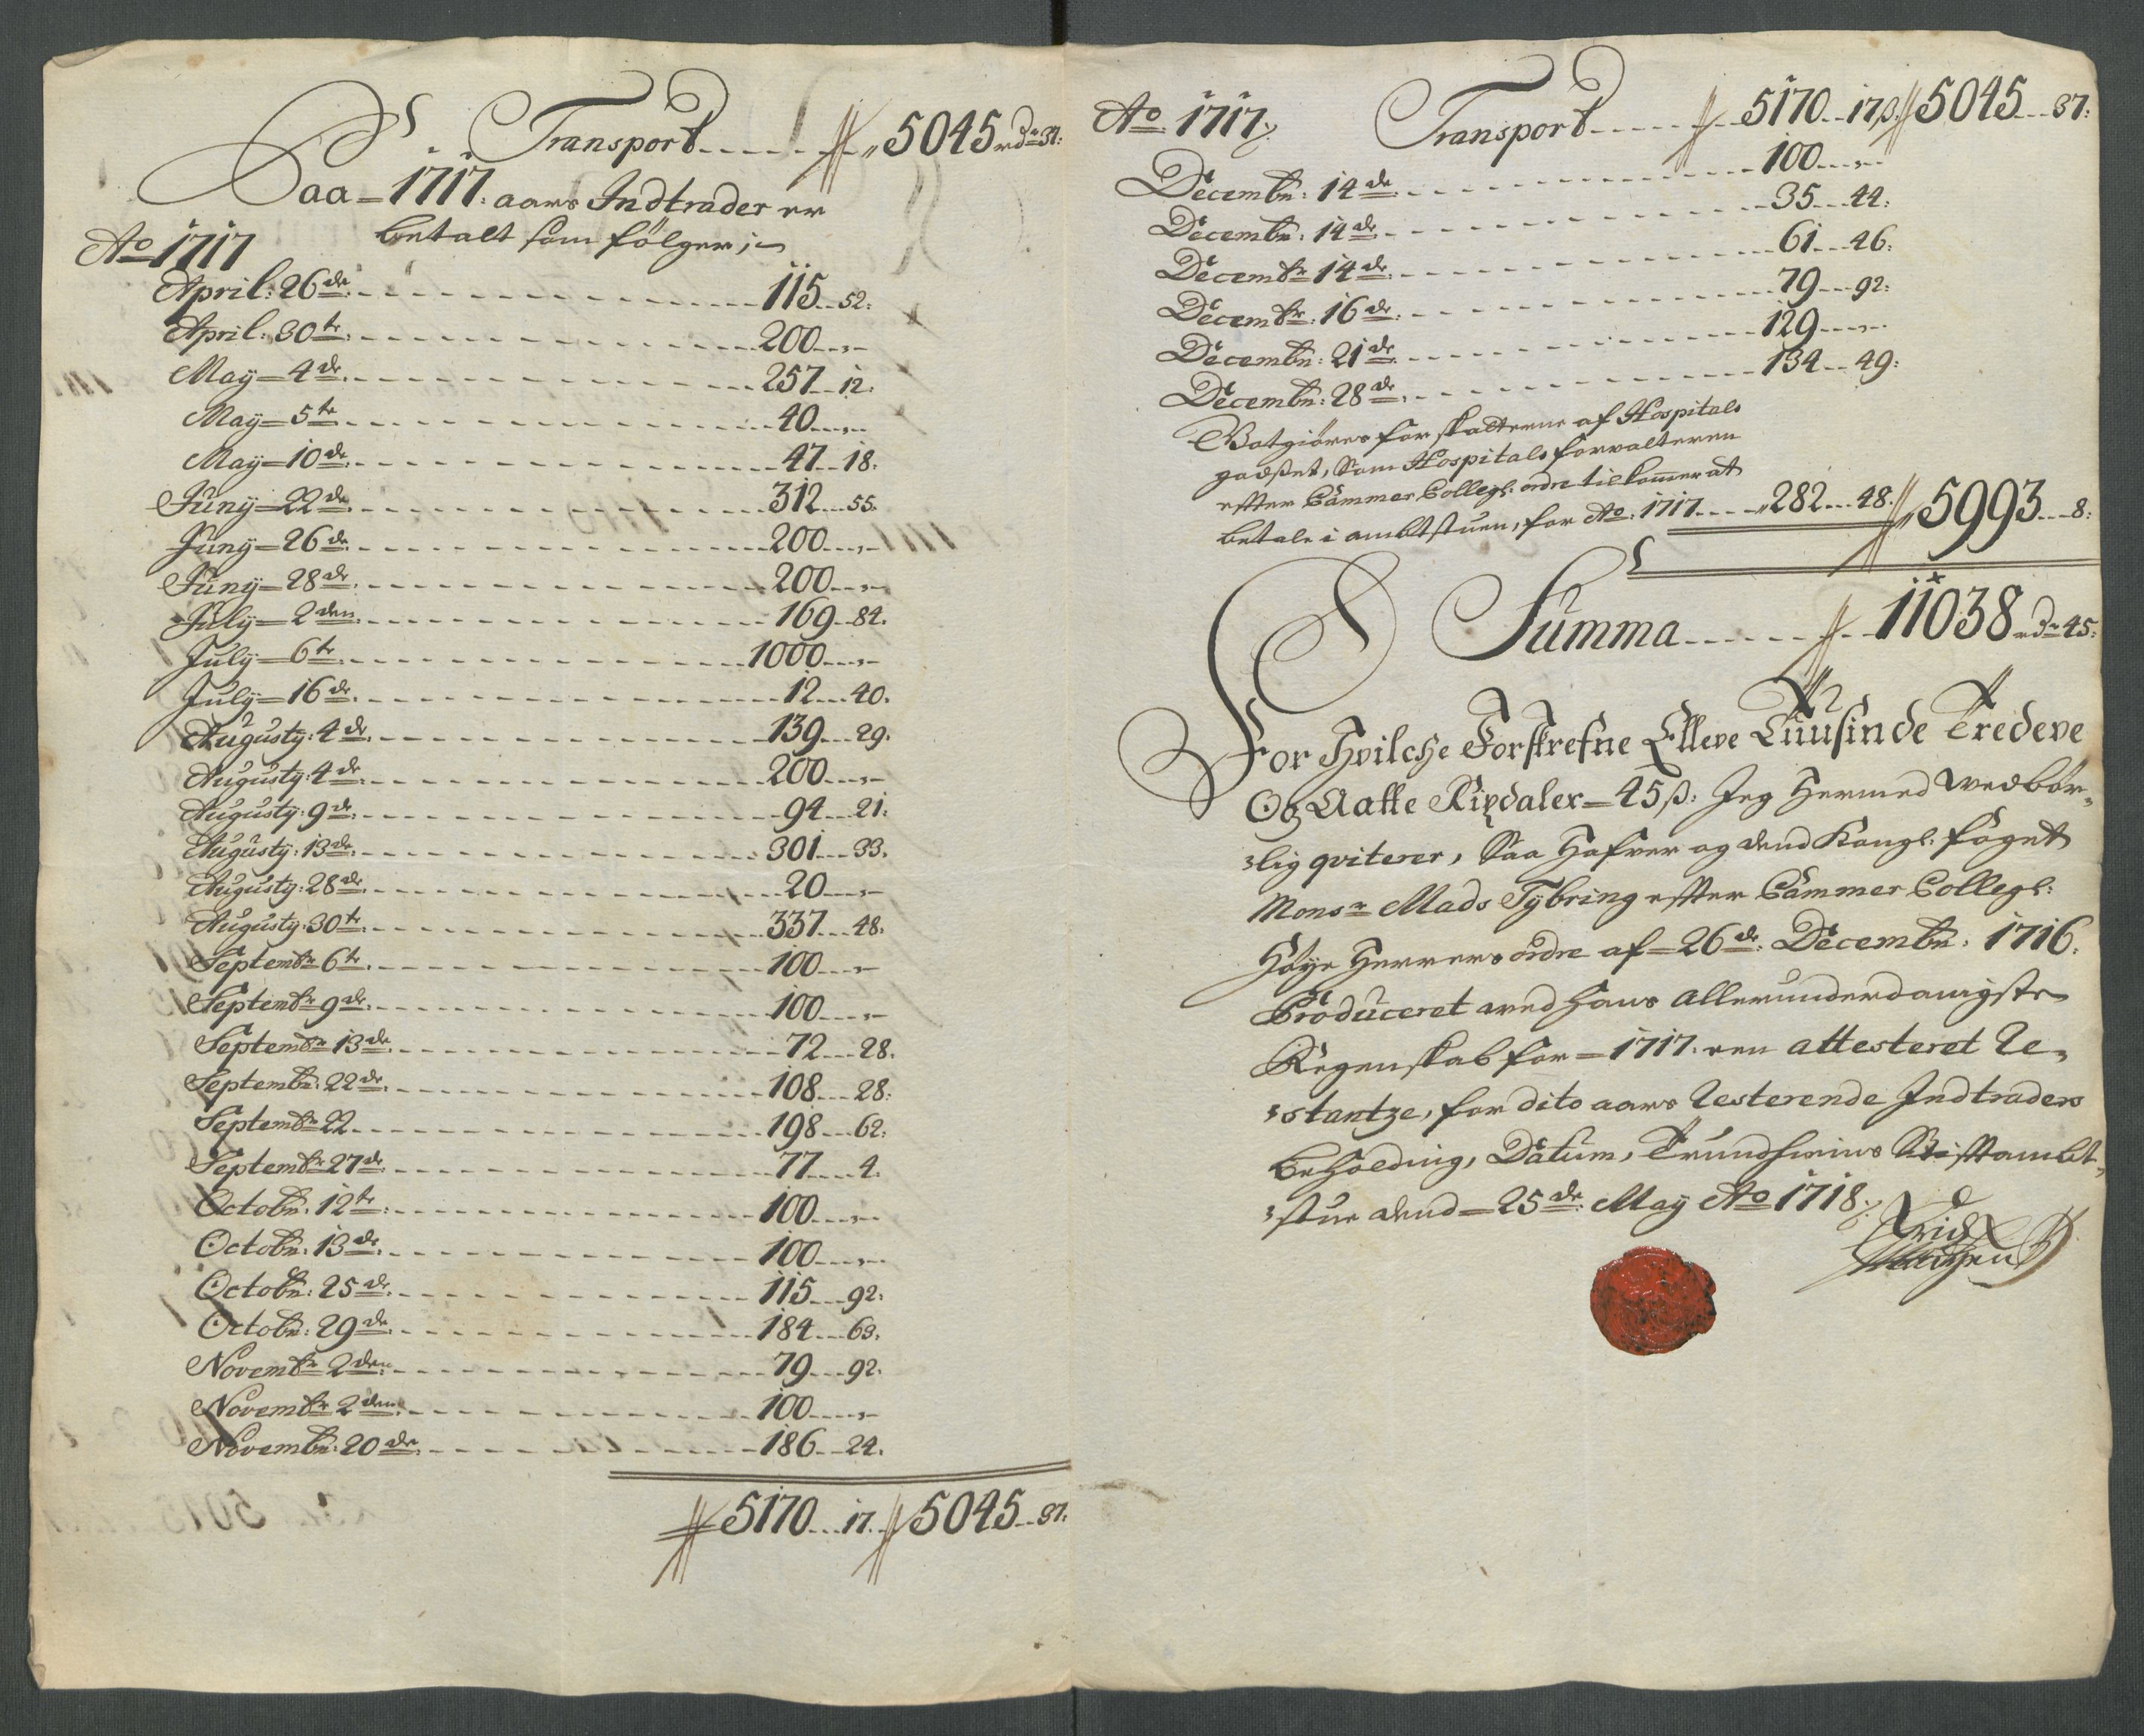 Transport 5045 rdr 37:
Paa 1717: aars Indtrader er
betalt som fölger:
Ao 1717
April: 26de 115 52:
April: 30te 200 "
May 4de 257 12:
May 5te 40 "
May 10de 47 18:
Juny 22de 312 55:
Juny 26de 200 "
Juny 28de 200 "
July 2den 169 84:
July 6te 1000 "
July 16de 12 40:
Augusty: 4de 139 29:
Augusty: 4de 200 "
Augusty: 9de 94 21:
Augusty: 13de 301 33:
Augusty: 28de 20 "
Augusty: 30te 337 48:
Septembr 6te 100 "
Septembr 9de 100 "
Septembr 13de 72 28:
Septembr: 22de 108 28:
Septembr 22 198 62:
Septembr 27de 77 4:
Octobr: 12te 100 "
Octobr: 13de 100 "
Octobr: 25de 115 92:
Octobr: 29de 184 63:
Novembr 2den 79 92:
Novembr 2den 100 "
Novembr: 20de 186 24:
5170 17 5045 37:
Ao 1717 Transport 5170 17ß 5045 37:
Decembr: 14de 100 "
Decembr: 14de 35 44:
Decembr 14de 61 46:
Decembr: 16de 79 92:
Decembr: 21de 129 "
Decembr: 28de 134 49:
Gotgiöres for skatterne af Hospitals
godset, Som Hospitals forvalteren
effter Cammer Collegl: ordre tilkommer at
betale i ambtstuen, for Ao: 1717 282 48: 5993 8:
Summa 11038 rdr 45:
For Hvilche Forskrefne Elleve Tuusinde Tredeve
Og Aatte Rixdaler 45ß: Jeg Hermed wedbör-
lig qviterer, Saa Hafver og dend Kongl: foget
Monsr Mads Tybring effter Cammer Collegl:
Höye Herrers ordre af 26de: Decembr: 1716:
Produceret wed hans allerunderdanigste
Regenskab for 1717: een attesteret Re-
stantze, for dito aars Resterende Indtraders
beholding, Datum, Trundhiems Stifftambt-
stue dend 25de: May Ao 1718